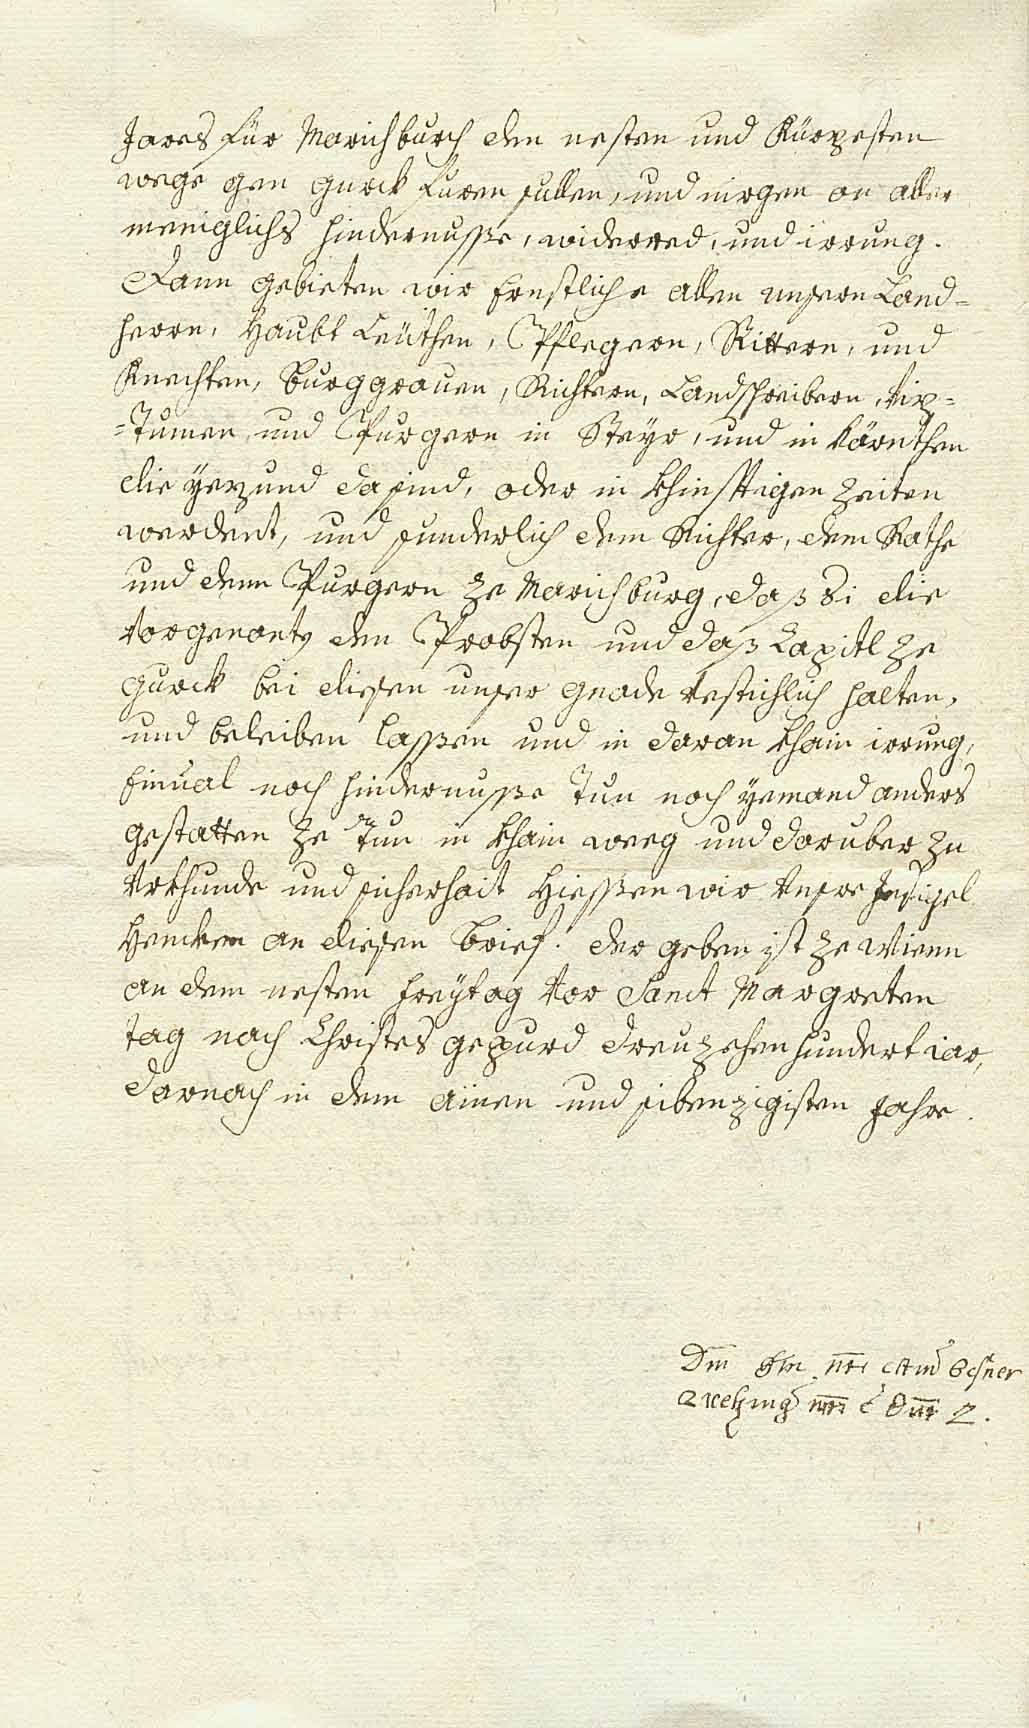 Jares für Marichburch den nesten und Kürzesten
wege gen Gurck füren sullen, und mugen on aller
meniglichs hindernusse, widerred, und irrung.
Dann gebieten wir Ernstliche allen unsern Land=
herrn, Haubt Leüthen, Pflegern, Rittern, und
Knechten, Burggrauen, Richtern, Landschreibern, Viz=
=Tumen, und Purgern in Steyr, und in Kärnthen
die yezund da sind, oder in khinfftigen Zeiten
werdent, und sunderlich dem Richter, dem Rathe
und denn Purgern ze Marichburg, daß Si die
Vorgenantn den Probsten und daß Capitl ze
Gurck bei diesen unser gnade Vestichlich halten,
und beleiben lassen und in daran khain irrung,
Einual noch hindernusse Tun noch yemand anders
gestatten ze Tun in khain weeg und daruber zu
Vrkhunde und sicherhait Hiessen wir Unser Insigel
Hencken an diesen brief. der geben ist ze Wienn
an dem nesten Freytag Vor Sanct Margreten
tag nach Christes gepurd dreuzehen hundert iar,
darnach in dem ainen und sibenzigisten Jahre.